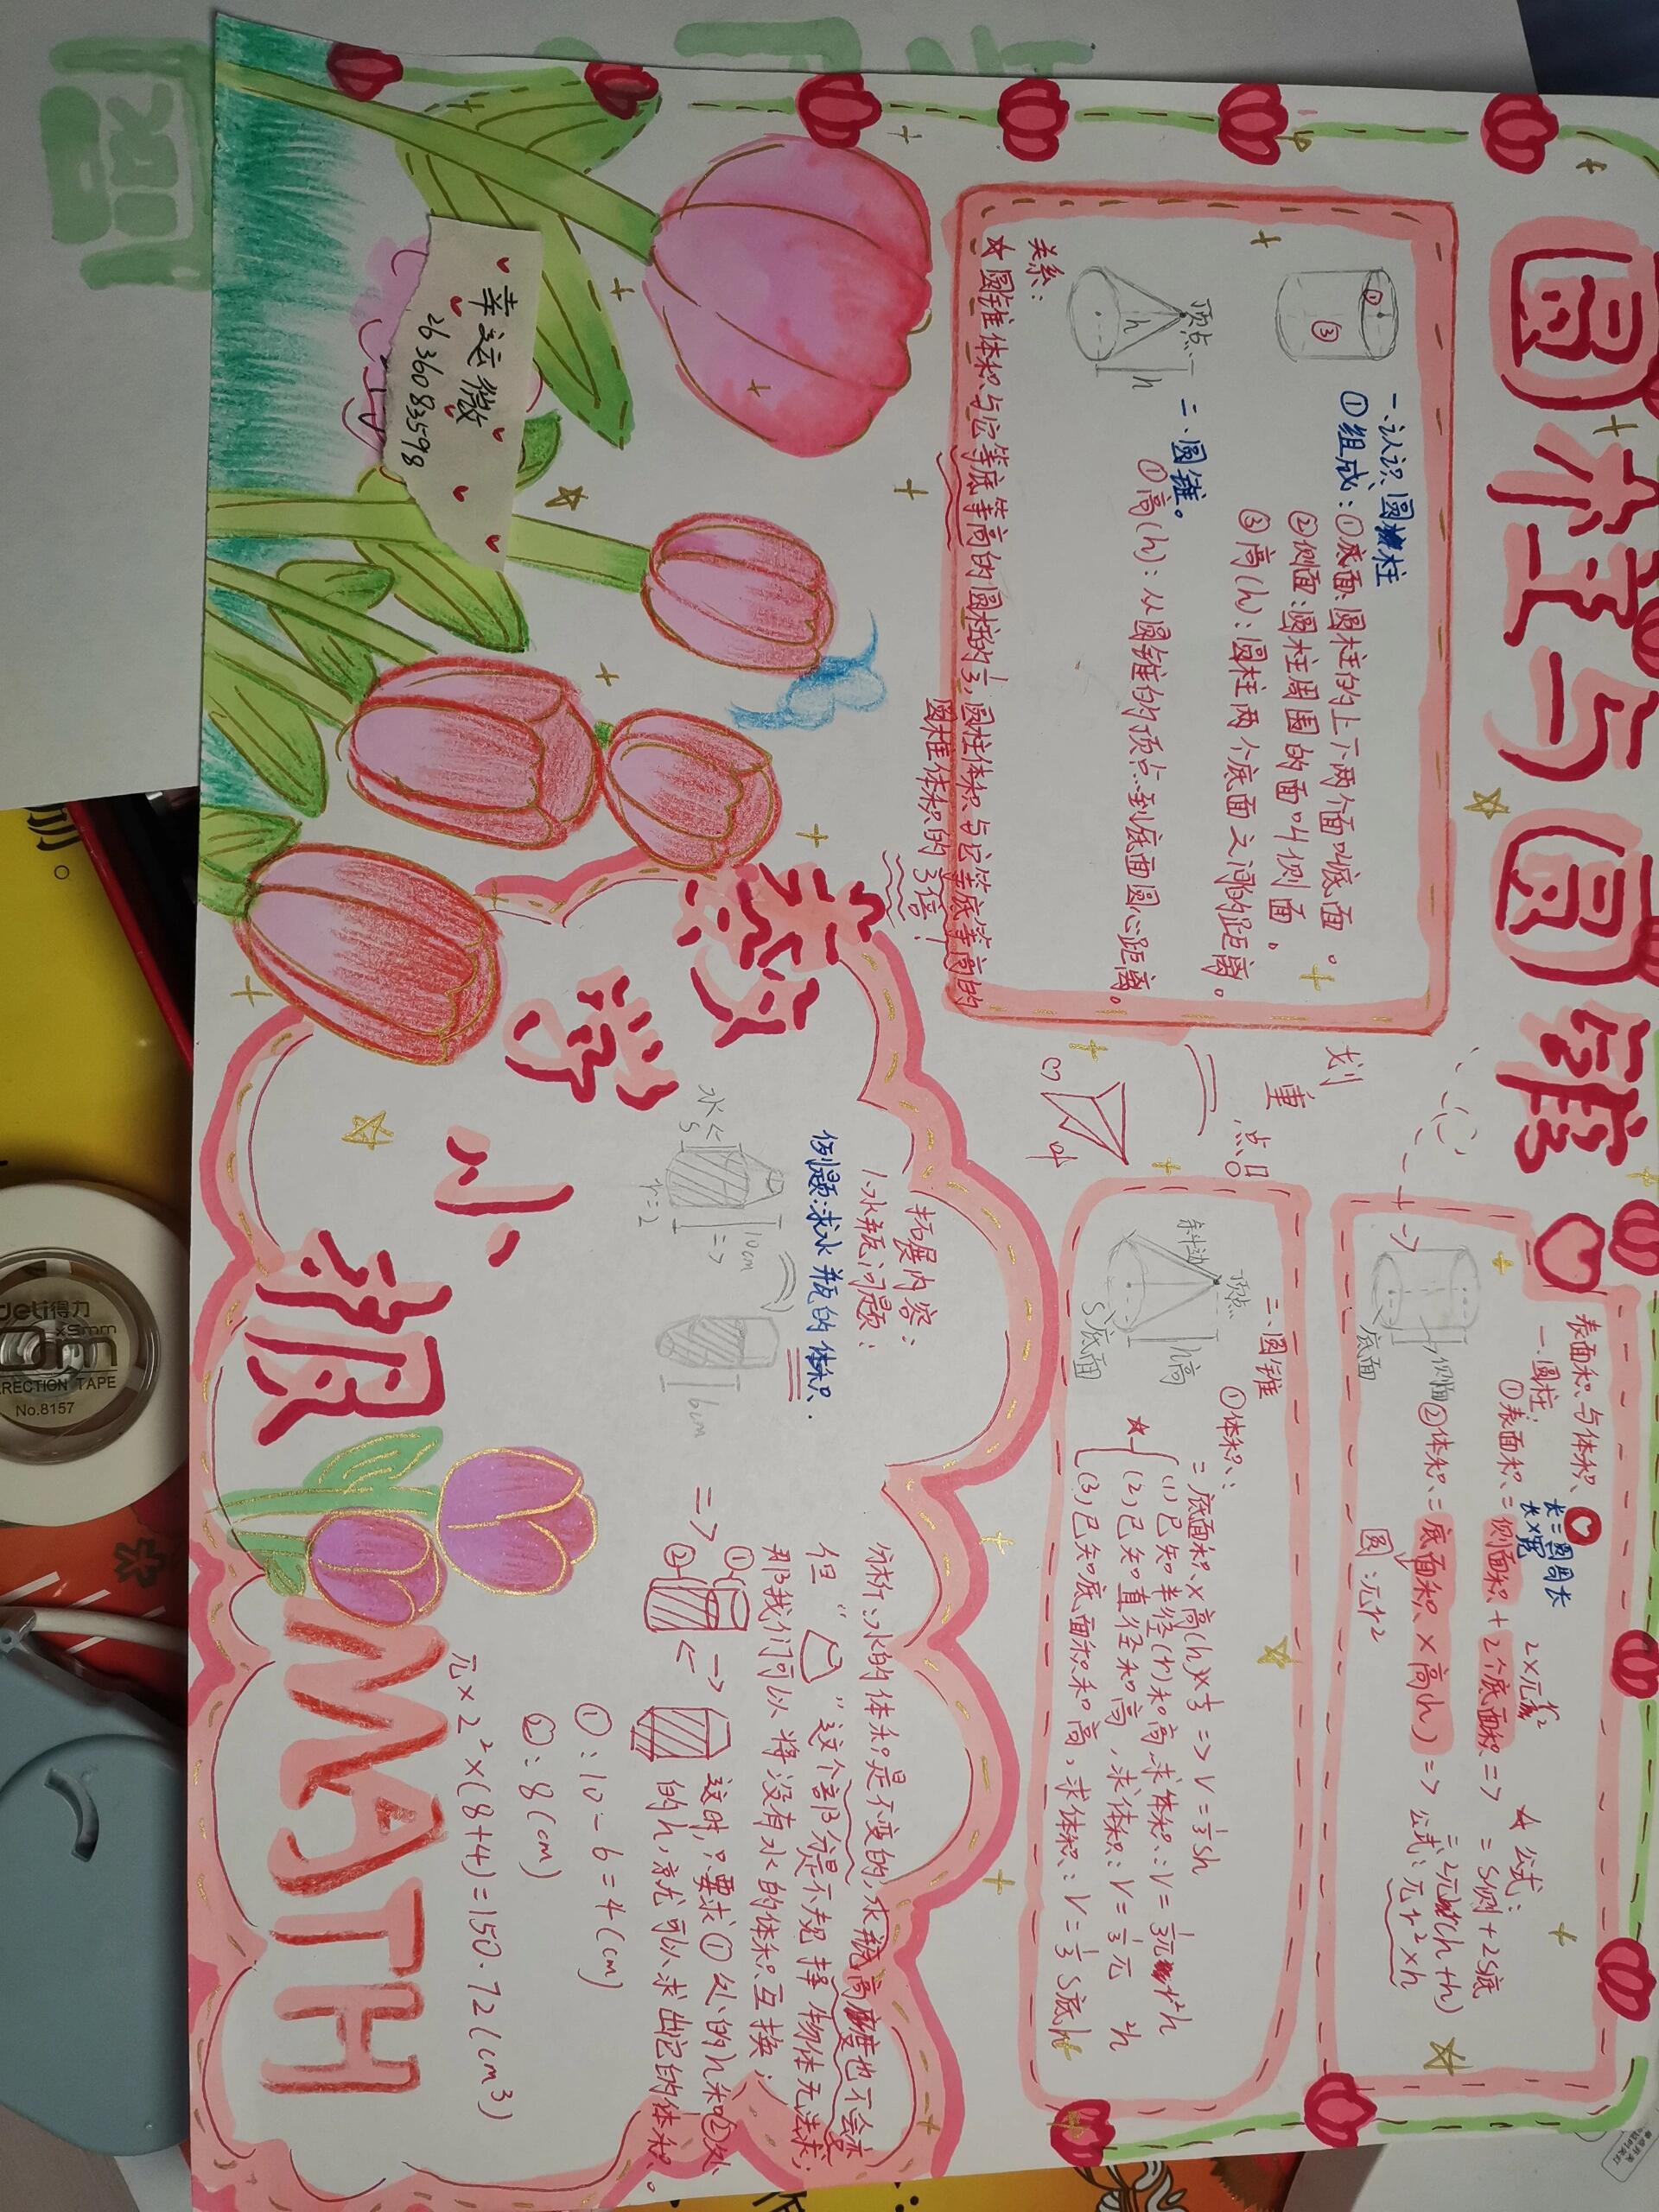 圆柱与圆锥
一.认识圆柱
①组成:①底面:圆柱的上下两个面叫底面。
②侧面:圆柱周围的面叫侧面。
③高(h):圆柱两个底面之间的距离。
①
③
二.圆锥。
①高(h):从圆锥的顶点到底面圆心距离。
顶点
h
h
关系:
☆圆锥体积与它等底等高的圆柱的1/3,圆柱体积与它等底等高的
圆锥体积的3倍!
划
重
点
表面积与体积
一.圆柱:
长=圆周长
长×宽
①表面积=侧面积+2个底面积=>
☆公式:
=S侧+2S底
②体积=底面积×高(h)=>公式:πr²×h
侧面
底面
圆:πr²
二.圆锥
①体积:
=底面积×高(h)×1/3=>V=1/3Sh
(1)已知半径(r)和高,求体积:V=1/3πr²h
(2)已知直径和高,求体积:V=1/3π
(3)已知底面积和高,求体积:V=1/3S底h
顶点
斜边
h高
S底面
拓展内容:
1.水瓶问题:
例题:求水瓶的体积.
水<=
5
r=2
10cm
=>
6cm
=>
分析:水的体积是不变的,求瓶高度也不会求
但“ ”这个部分是不规择物体无法求;
那我们可以将没有水的体积互换;
①
②
这时,只要求①处的h和②处
的h,就可以求出它的体积。
①:10-6=4(cm)
②:8(cm)
π×2²×(8+4)=150.72(cm³)
数
学
小
报
MATH
幸运薇
2636083598
deli得力
×5mm
RRECTION TAPE
No.8157